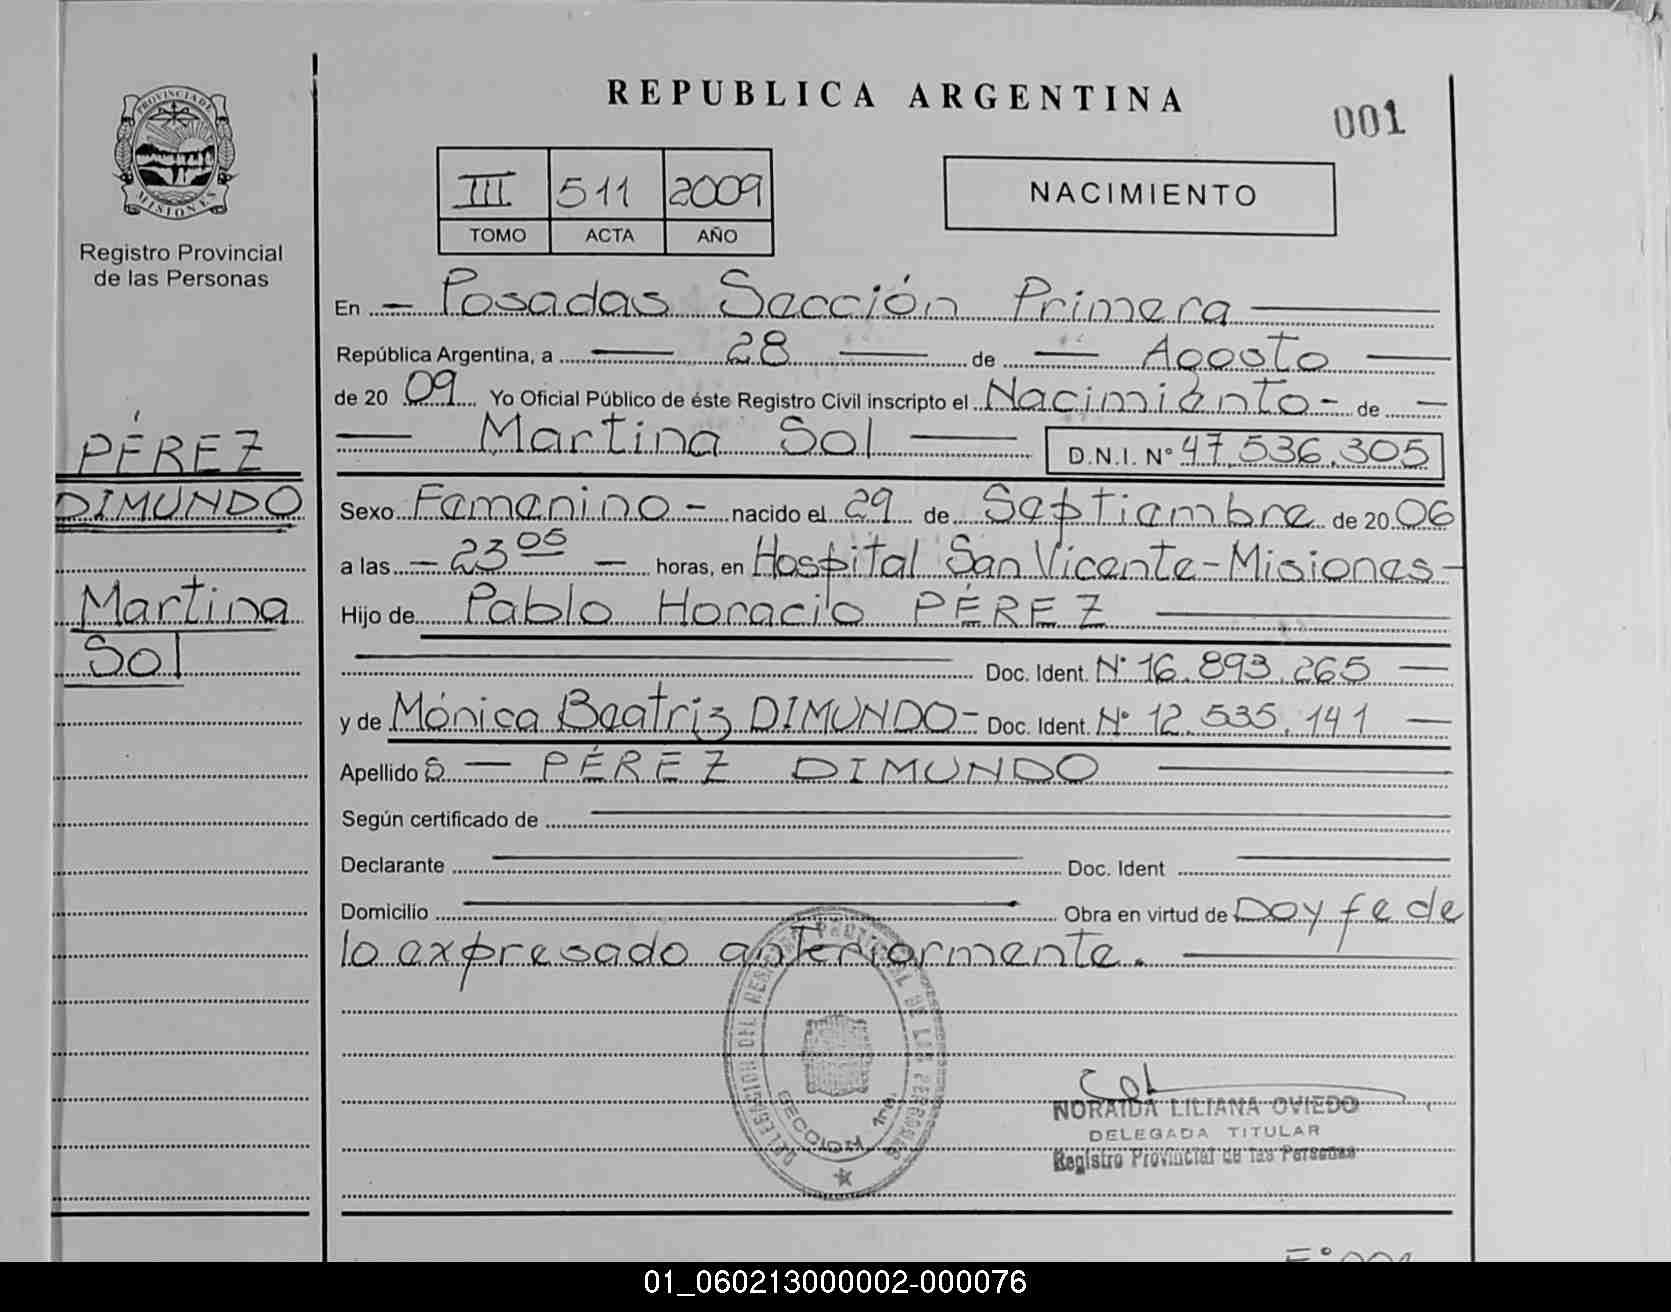 REPUBLICA ARGENTINA
001
PROVINCIA DE
MISIONES
Registro Provincial
de las Personas
III 511 2009
TOMO ACTA AÑO
NACIMIENTO
En - Posadas Sección Primera
República Argentina, a 28 de Agosto
de 20 09 Yo Oficial Público de éste Registro Civil inscripto el Nacimiento - de -
Martina Sol D.N.I. N° 47.536.305
PÉREZ
DIMUNDO
Martina
Sol
Sexo Femenino - nacido el 29 de Septiembre de 20 06
a las - 23 05 - horas, en Hospital San Vicente - Misiones -
Hijo de Pablo Horacio PÉREZ
Doc. Ident. N° 16.893.265
y de Mónica Beatriz DIMUNDO - Doc. Ident. N° 12.535.141
Apellido S - PÉREZ DIMUNDO
Según certificado de
Declarante Doc. Ident
Domicilio Obra en virtud de Doy fe de
lo expresado anteriormente.
DELEGACION DEL REGISTRO PROVINCIAL DE LAS PERSONAS
SECCION 1ra.
NORAIDA LILIANA OVIEDO
DELEGADA TITULAR
Registro Provincial de las Personas
01_060213000002-000076